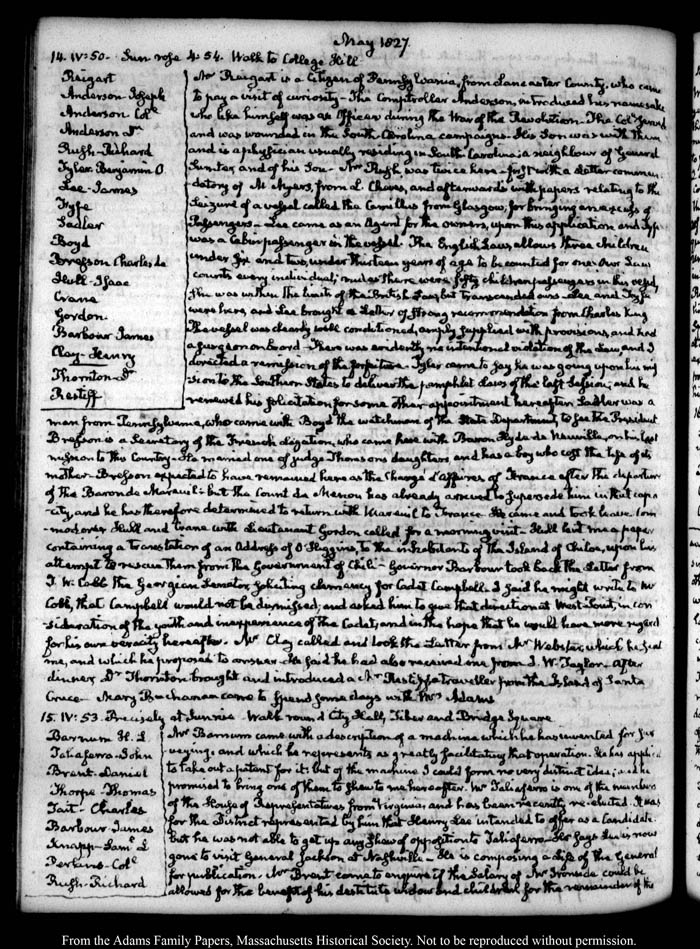 May 1827.
14. IV:50. Sun rose 4:54. Walk to College Hill
Reigart
Anderson Joseph
Anderson Colᵉ
Anderson Dʳ
Rush-Richard
Tyler Benjamin O.
Lee-James
Fyfe
Sadler
Boyd
Bresson Charles de
Hull-Isaac
Crane
Gordon.
Barbour James
Clay-Henry
Thornton-Dʳ
Restiff
Mr Reigart is a Citizen of Pennsylvania, from Lancaster County, who came
to pay a visit of curiosity - The Comptroller Anderson, introduced his namesake
who like himself was an Officer during the War of the Revolution. The Colˡ served
and was wounded in the South Carolina campaigns. His Son was with them
and is a physician usually residing in South Carolina; a neighbour of General
Sumter, and of his Son. Mr Rush was twice here - first with a letter commen-
datory of M. Myers, from L. Cheves, and afterwards with papers relating to the
Seizure of a vessel called the Camillus from Glasgow, for bringing an excess of
Passengers - Lee came as an Agent for the owners, upon this application and Fyfe
was a Cabin passenger in the vessel. The English Laws, allows three children
under six and two, under thirteen years of age to be counted for one. Our Laws
counts every individual; and as there were fifty children passengers in this vessel,
She was within the limits of the British Law, but transcended ours. Lee and Fyfe
were here, and Lee brought a Letter of strong recommendation from Charles King
The vessel was clearly well conditioned, amply supplied with provisions, and had
a Surgeon on board - There was evidently no intentional violation of the Law and I
directed a remission of the forfeiture. Tyler came to say he was going upon his mis
sion to the Southern States to deliver the pamphlet Laws of the last Session; and he
renewed his solicitation for some other appointment hereafter. Sadler was a
man from Pennsylvania, who came with Boyd the watchman of the State Department, to see the President
Bresson is a Secretary of the French Legation, who came here with Baron Hyde de Neuville, on his last
mission to this Country - He married one of judge Thompson's daughters and has a boy who cost the life of its
mother. Bresson expected to have remained here as the Chargé d'Affaires of France after the departure
of the Baron de Mareuil: but the Count de Menou has already arrived to supersede him in that capa-
-city, and he has therefore determined to return with Mareuil to France. He came and took leave. Com
-modores Hull and Crane with Lieutenant Gordon called for a morning visit - Hull lent me a paper
containing a translation of an Address of O'Higgins, to the inhabitants of the Island of Chiloe, upon his
attempt to rescue them from the Government of Chili - Governor Barbour took back the Letter from
T. W. Cobb the Georgian Senator, soliciting clemency for Cadet Campbell. I said he might write to Mr
Cobb, that Campbell would not be dismissed, and asked him to give that direction at West-Point, in con
-sideration of the youth and inexperience of the Cadet, and in the hope that he would have more regard
for his own veracity hereafter. Mr Clay called and took the Letter from Mr Webster, which he sent
me, and which he proposed to answer. He said he had also received one from J. W. Taylor - After
dinner Dʳ Thornton brought and introduced a Mr Restiff a traveller from the Island of Santa
Cruz - Mary Buchanan came to spend some days with Mrs Adams
15. IV:53. Precisely at Sunrise. Walk round City Hall, Tiber and Bridge Square
Barnum H. L
Taliaferro-John
Brent-Daniel
Thorpe-Thomas
Tait-Charles
Barbour-James
Knapp-Samˡ L
Perkins-Colᵉ
Rush-Richard
Mr Barnum came with a description of a machine which he has invented for Sur
veying, and which he represents as greatly facilitating that operation. He has applied
to take out a patent for it; but of the machine I could form no very distinct idea; and he
promised to bring one of them to shew to me hereafter. Mr Taliaferro is one of the members
of the House of Representatives from Virginia, and has been recently re-elected. It was
for the District represented by him that Henry Lee intended to offer as a Candidate.
but he was not able to get up any shew of opposition to Taliaferro - He says Lee is now
gone to visit General Jackson at Nashville - He is composing a Life of the General
for publication. Mr Brent came to enquire if the Salary of Mr Ironside could be
allowed for the benefit of his destitute widow and children for the remainder of the
From the Adams Family Papers, Massachusetts Historical Society. Not to be reproduced without permission.